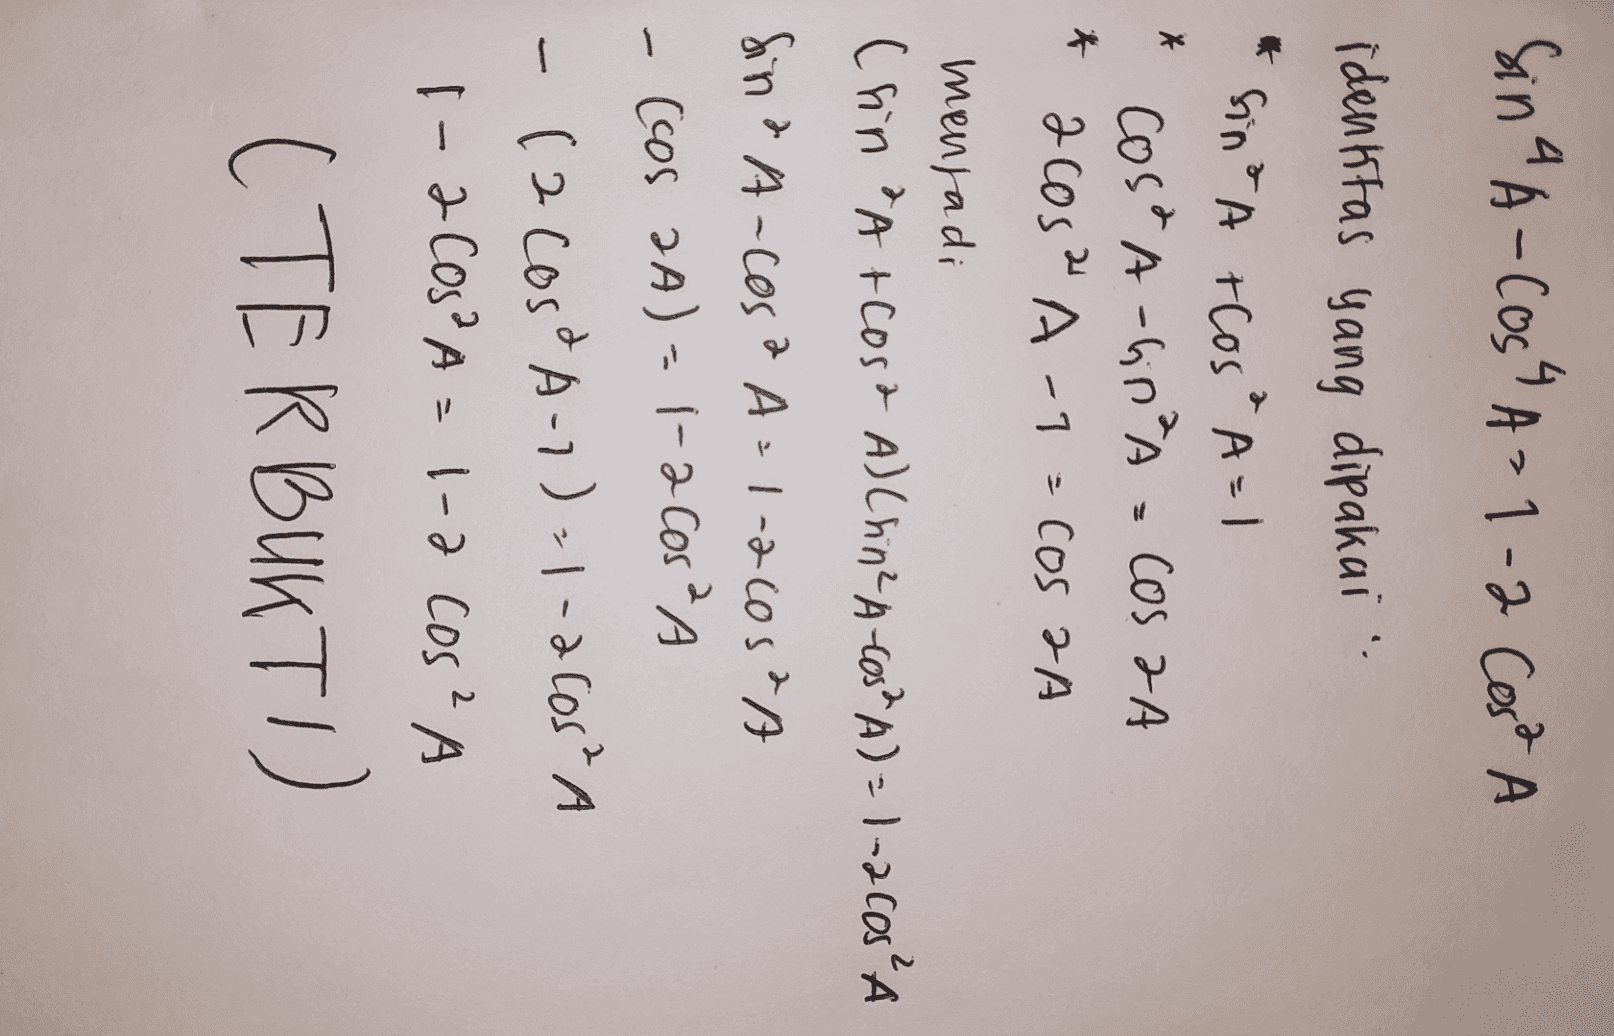 Sin⁴A - Cos⁴A = 1 - 2 Cos²A
identitas yang dipakai :
* Sin²A + Cos²A = 1
* Cos²A - Sin²A = Cos 2A
* 2 Cos²A - 1 = Cos 2A
menjadi
(Sin²A + Cos²A)(Sin²A - Cos²A) = 1 - 2 Cos²A
Sin²A - Cos²A = 1 - 2 Cos²A
- (Cos 2A) = 1 - 2 Cos²A
- (2 Cos²A - 1) = 1 - 2 Cos²A
1 - 2 Cos²A = 1 - 2 Cos²A
(TERBUKTI)